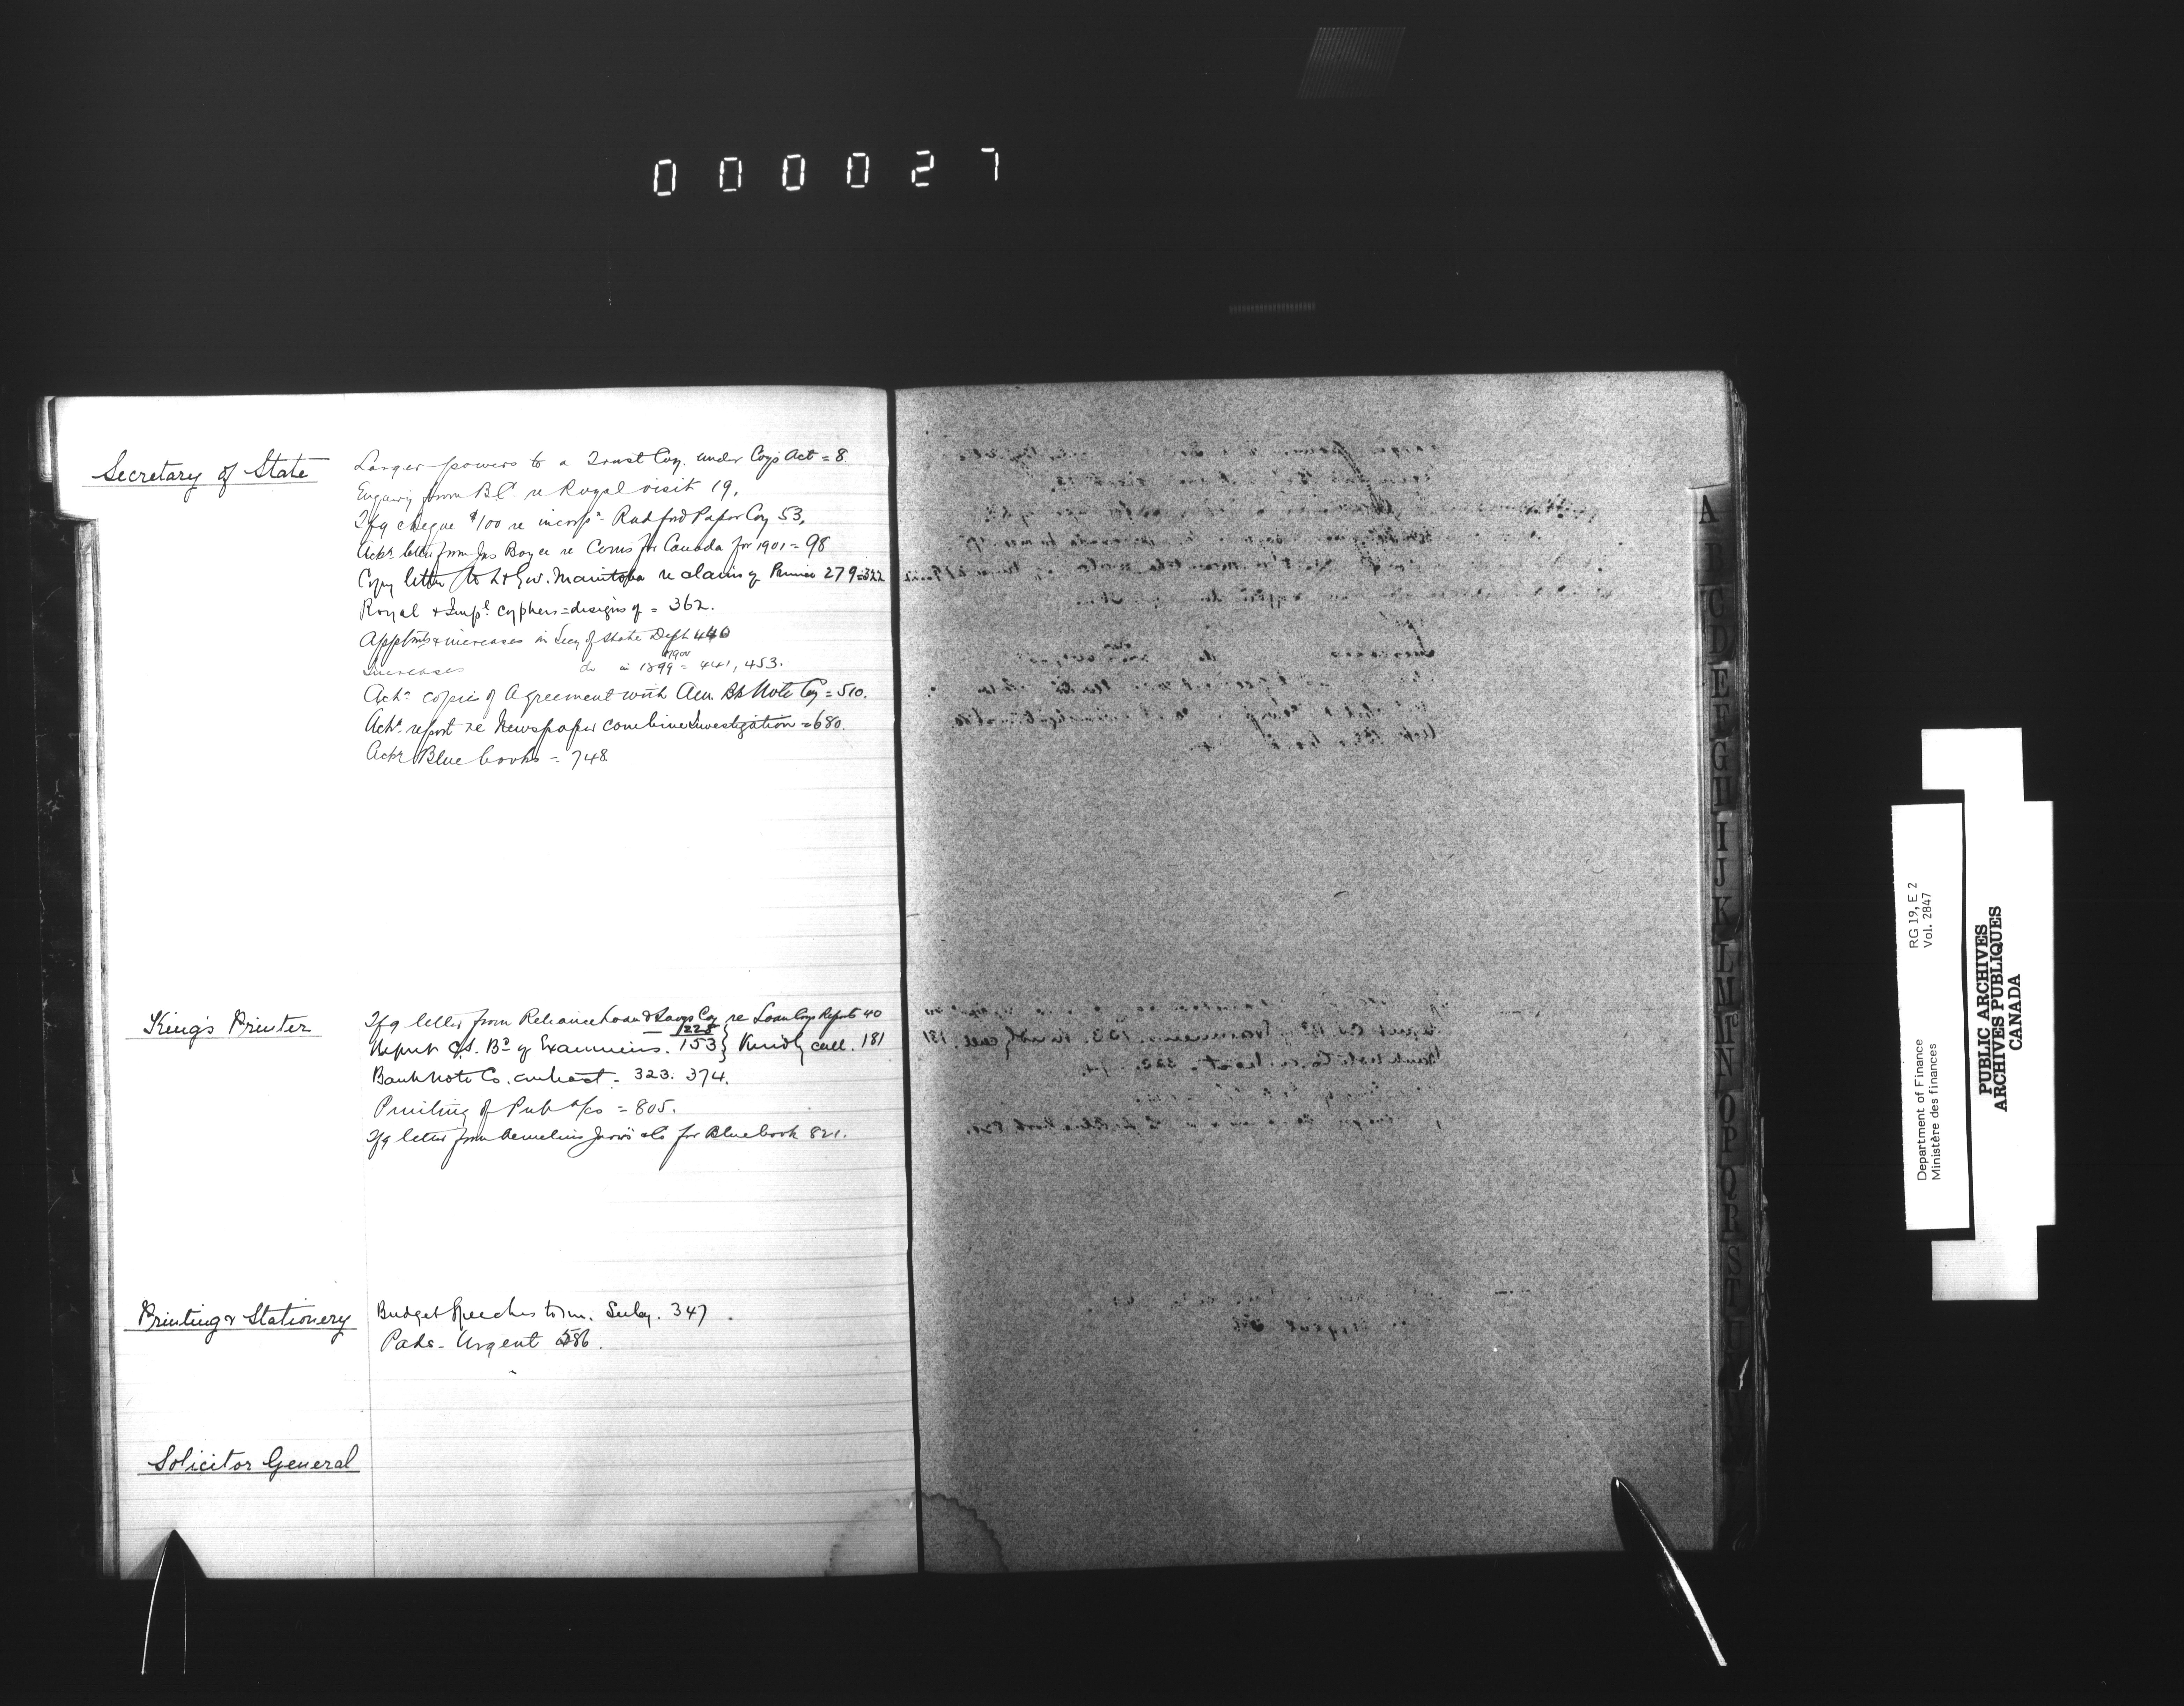 000027
Secretary of State
Larger powers to a Trust Coy. under Coys Act = 8.
Enquiry from B.C. re Royal visit 19.
Tfg cheque $100 re incorpn Radford Paper Coy 53.
Ackg letter from Jas Boyce re Comrs for Canada for 1901 = 98
Copy letter to Lt Gov. Manitoba re claims of Province 279=322
Royal & Impl. cyphers = designs of = 362.
Apptmts & increases in Secy of State Dept 440
Increases do in 1899 & 1900 = 441, 453.
Ackg copies of Agreement with Am. Bk Note Coy = 510.
Ackg report re Newspaper combine Investigation = 680.
Ackg Blue books = 748
King's Printer
Tfg letter from Reliance Loan & Savgs Coy re Loan Coys Reports 40
1228
Report C.S. Bd of Examiners. 153} Kindly call. 181
Bank Note Co. contract = 323. 374.
Printing of Pub a/cs = 805.
Tfg letter from for Blue book 821.
Printing & Stationery
Budget Speeches to 347
Pads - Urgent 586.
Solicitor General
A
B
C
D
E
F
G
H
I
J
K
L
M
N
O
P
Q
R
S
T
RG 19, E 2
Vol. 2847
Department of Finance
Ministère des finances
PUBLIC ARCHIVES
ARCHIVES PUBLIQUES
CANADA